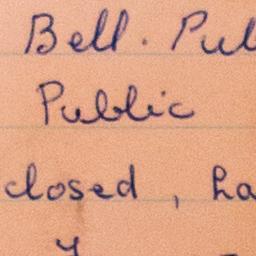 Bell. Pul
Public
closed, ha
y